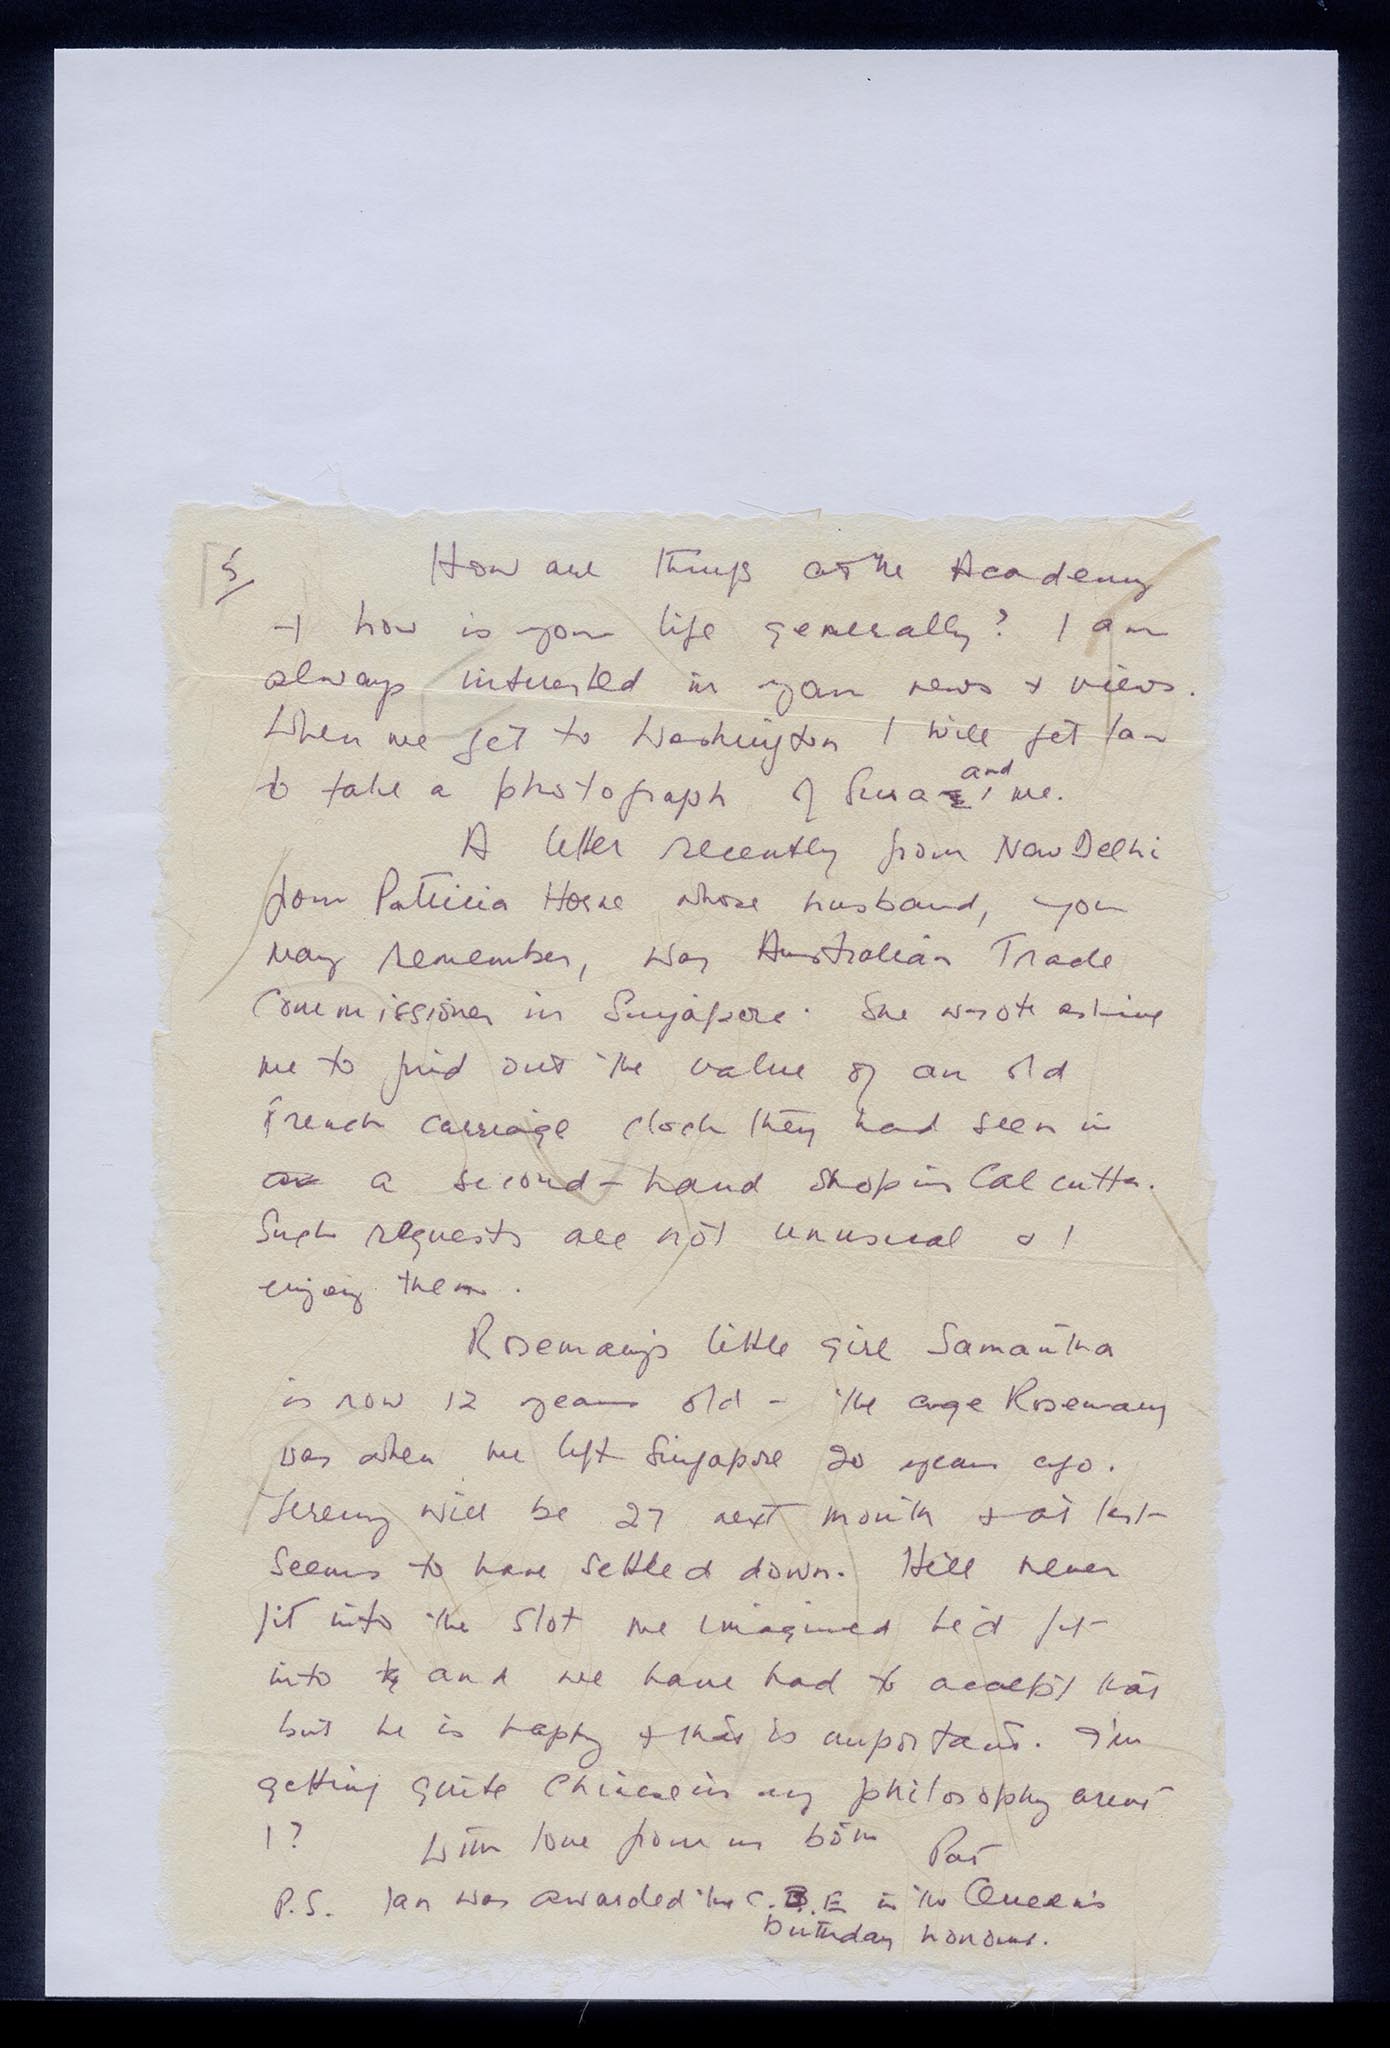 5/ How are things at the Academy
+ how is your life generally? I am
always interested in your news + views.
When we get to Washington I will get Ian
to take a photograph of and me.
A letter recently from New Delhi
from Patricia Horne whose husband, you
may remember, was Australian Trade
Commissioner in Singapore. She wrote asking
me to find out the value of an old
French carriage clock they had seen in
a second-hand shop in Calcutta.
Such requests are not unusual & I
enjoy them.
Rosemary's little girl Samantha
is now 12 years old - the age Rosemary
was when we left Singapore 20 years ago.
Jeremy will be 27 next month + at last
seems to have settled down. He'll never
fit into the slot we imagined he'd fit
into and we have had to accept that
but he is happy + that is important. I'm
getting quite Chinese in my philosophy arent
I? With love from us both Pat
P.S. Ian was awarded the C.B.E in the Queen's
birthday honours.